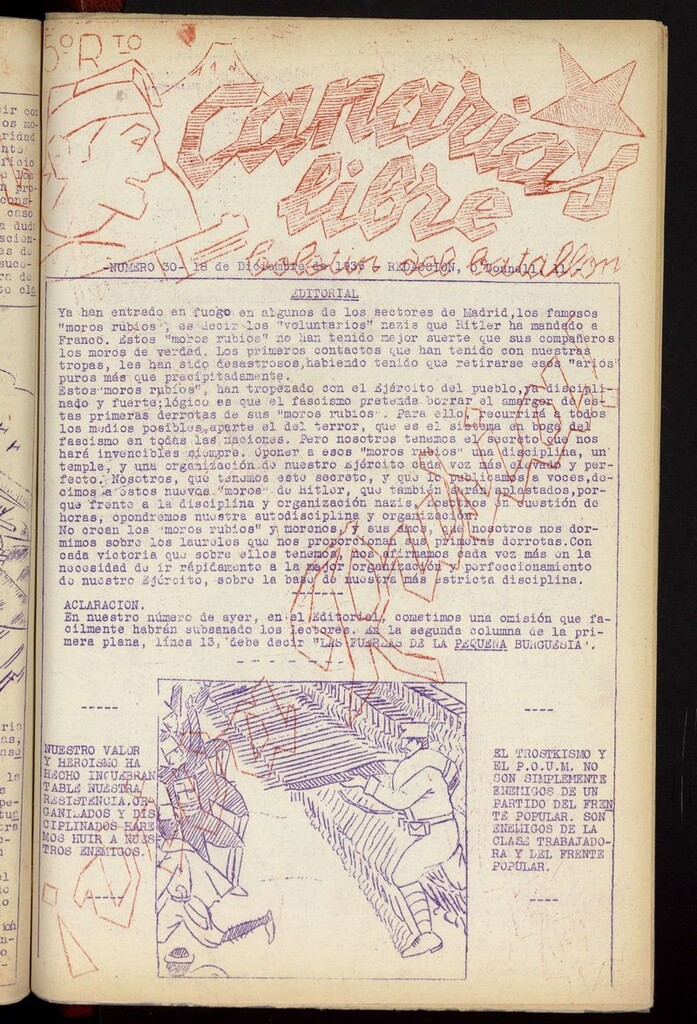 5º RTO
Canarias
libre
boletin del batallon
-NUMERO 30- 18 de Diciembre de 1936 - REDACCION, O'Donnell 11.-
EDITORIAL
Ya han entrado en fuego en algunos de los sectores de Madrid,los famosos
"moros rubios", es decir los "voluntarios" nazis que Hitler ha mandado a
Franco. Estos "moros rubios" no han tenido mejor suerte que sus compañeros
los moros de verdad. Los primeros contactos que han tenido con nuestras
tropas, les han sido desastrosos,habiendo tenido que retirarse esos "arios"
puros más que precipitadamente.
Estos"moros rubios", han tropezado con el Ejército del pueblo,ya disciplí-
nado y fuerte;lógico es que el fascismo pretenda borrar el amargor de es-
tas primeras derrotas de sus "moros rubios". Para ello, recurrirá a todos
los medios posibles,aparte el del terror, que es el sistema en boga del
fascismo en todas las naciones. Pero nosotros tenemos el secreto que nos
hará invencibles siempre. Oponer a esos "moros rubios" una disciplina, un
temple, y una organización de nuestro Ejército cada vez más elevado y per-
fecto. Nosotros, que tenemos este secreto, y que lo publicamos a voces,de-
cimos a estos nuevos "moros" de Hitler, que también serán aplastados,por-
que frente a la disciplina y organización nazis, nosotros en cuestión de
horas, opondremos nuestra autodisciplina y organización.
No crean los "moros rubios" y morenos y sus amos, que nosotros nos dor-
mimos sobre los laureles que nos proporcionan sus primeras derrotas.Con
cada victoria que sobre ellos tenemos, nos afirmamos cada vez más en la
necesidad de ir rápidamente a la mejor organización y perfeccionamiento
de nuestro Ejército, sobre la base de nuestra más estricta disciplina.
ACLARACION.
En nuestro número de ayer, en el Editorial, cometimos una omisión que fa-
cilmente habrán subsanado los lectores. En la segunda columna de la pri-
mera plana, línea 13, debe decir "LAS FUERZAS DE LA PEQUEÑA BURGUESIA".
NUESTRO VALOR
Y HEROISMO HA
HECHO INQUEBRAN
TABLE NUESTRA
RESISTENCIA.OR
GANIZADOS Y DIS
CIPLINADOS HARE
MOS HUIR A NUES
TROS ENEMIGOS.
EL TROSTKISMO Y
EL P.O.U.M. NO
SON SIMPLEMENTE
ENEMIGOS DE UN
PARTIDO DEL FREN
TE POPULAR. SON
ENEMIGOS DE LA
CLASE TRABAJADO-
RA Y DEL FRENTE
POPULAR.